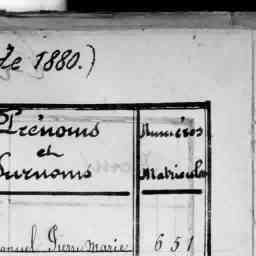 de 1880.)
Prénoms
et
Surnoms
Numéros
Matricules
manuel Pierre Marie 651